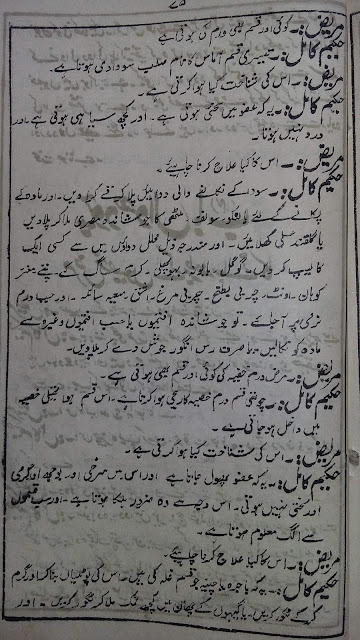 ۷۵
مریض:۔ کوئی اور قسم بھی ورم کی ہوتی ہے
حکیم کامل:۔ تیسری قسم آماس کا نام صلب سوداوی ہوتا ہے۔
مریض:۔ اس کی شناخت کیا ہوا کرتی ہے۔
حکیم کامل:۔ یہ کہ عضو میں سختی ہوتی ہے۔ اور کچھ سیاہی ہوتی ہے۔ اور
درد نہیں ہوتا۔
مریض:۔ اس کا کیا علاج کرنا چاہیئے۔
حکیم کامل:۔ سودا کے نکالنے والی دوائیں پلا کر قے کراویں۔ اور مادہ کے
پکانے کے لئے سونف۔ ملٹھی کا جوشاندہ مصری ملا کر پلا دیں
یا گلقند کھلائیں۔ اور مندرجہ ذیل محلل دواؤں میں سے کسی ایک
کا لیپ کر دیں۔ گوگل۔ بابونہ۔ کرنب ساگ کے پتے۔ مغز
کوہان۔ اونٹ۔ چربی بطخ۔ چربی مرغ۔ اشق۔ میعہ سائلہ۔ اور جب ورم
نرمی پر آ جائے۔ تو جوشاندہ افتیموں یا حب افتیموں وغیرہ سے
مادہ کو نکالیں۔ یا صرف رس انگور جوش دے کر پلاویں۔
مریض:۔ مرض ورم خصیہ کی کوئی اور قسم بھی ہوتی ہے۔
حکیم کامل:۔ چوتھی قسم ورم خصیہ کا ریحی ہوا کرتا ہے۔ اس قسم ہوا خصیہ
میں داخل ہو جاتی ہے۔
مریض:۔ اس کی شناخت کیا ہوا کرتی ہے۔
حکیم کامل:۔ یہ کہ عضو پھول جاتا ہے اور اس میں سرخی اور بوجھ اور گرمی
اور سختی نہیں ہوتی۔ اس وجہ سے وہ ہلکا ہوتا ہے۔ اور
سے الگ معلوم ہوتا ہے۔
مریض:۔ اس کا کیا علاج کرنا چاہیئے۔
حکیم کامل:۔ یہ کہ باجرہ یا چینہ جو قسم غلہ کی ہیں۔ اس کی پوٹلیاں بنا کر اور گرم
کر کے ٹکور کریں۔ یا گیہوں کے چھان میں نمک ملا کر ٹکور کریں۔ اور